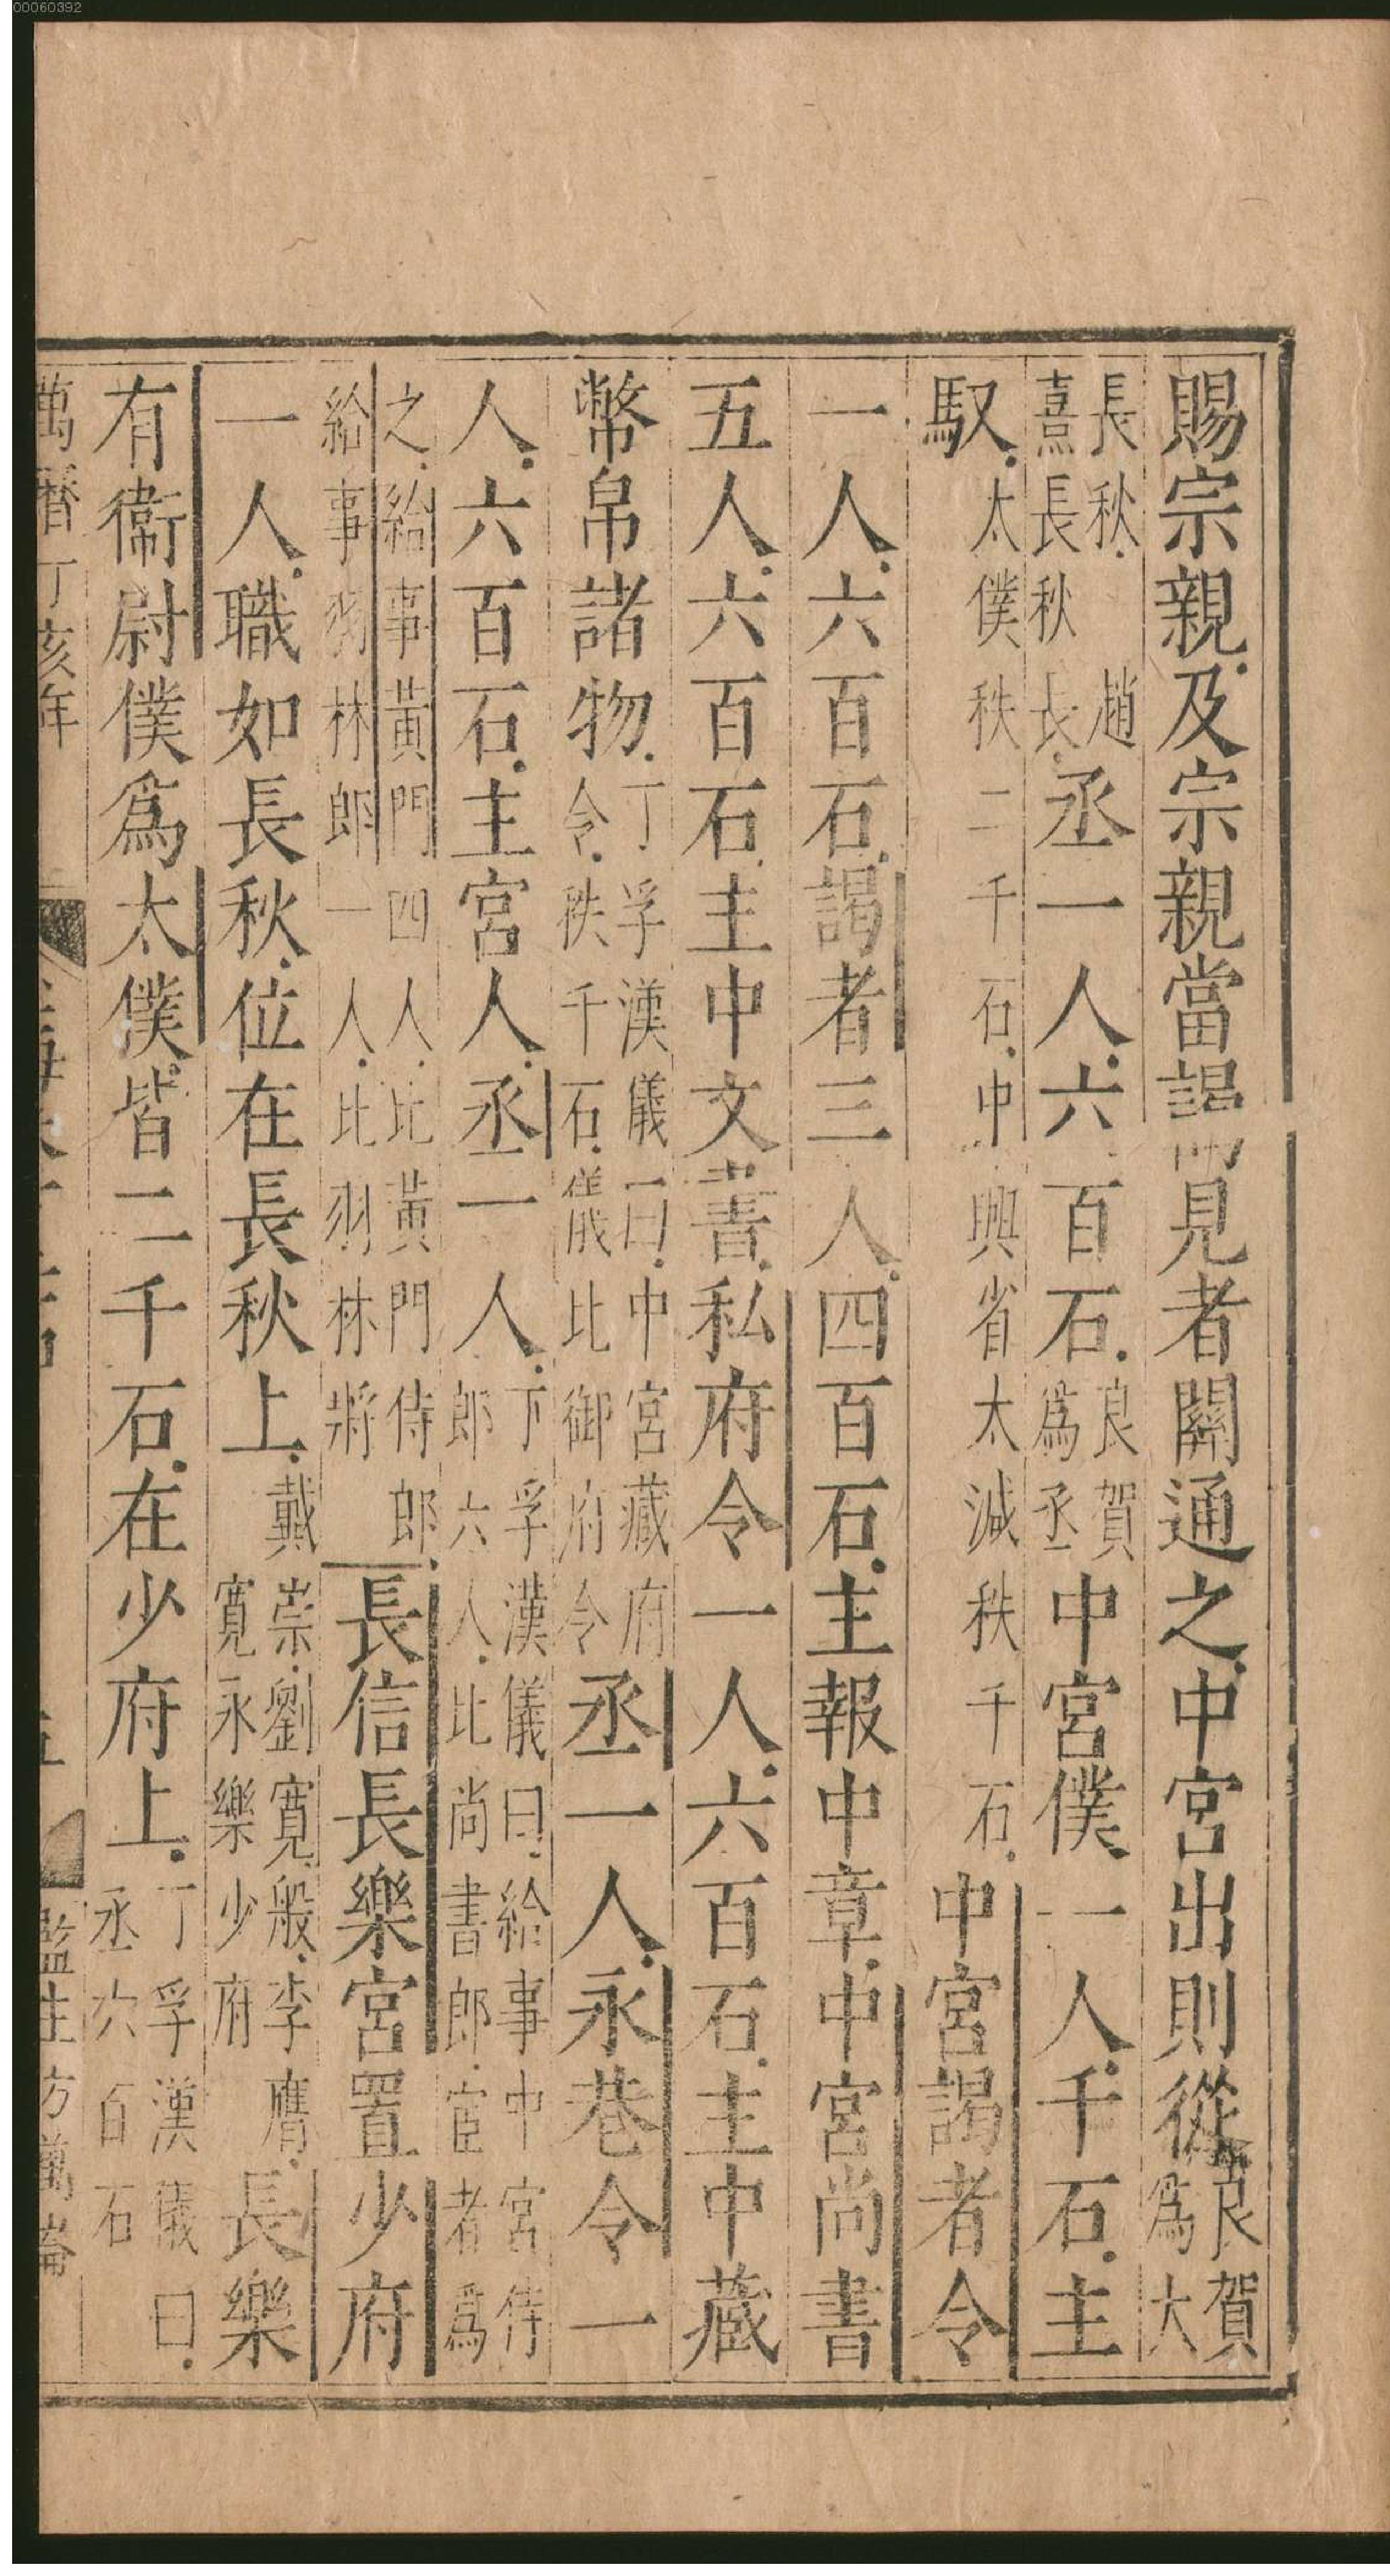 00060392
賜宗親及宗親當謁見者關通之中宮出則從良賀爲大
長秋趙熹長秋長丞一人六百石良賀爲丞中宮僕一人千石主
馭太僕秩二千石中興省太減秩千石中宮謁者令
一人六百石謁者三人四百石主報中章中宮尚書
五人六百石主中文書私府令一人六百石主中藏
幣帛諸物丁孚漢儀曰中宮藏府令秩千石儀比御府令丞一人永巷令一
人六百石主宮人丞一人丁孚漢儀曰給事中宮侍郎六人比尚書郎宦者爲
之給事黃門四人比黃門侍郎給事羽林郎一人比羽林將長信長樂宮置少府
一人職如長秋位在長秋上戴崇劉寬般李膺寬永樂少府長樂
有衞尉僕爲太僕皆二千石在少府上丁孚漢儀曰丞六百石
萬曆丁亥年
監生方萬